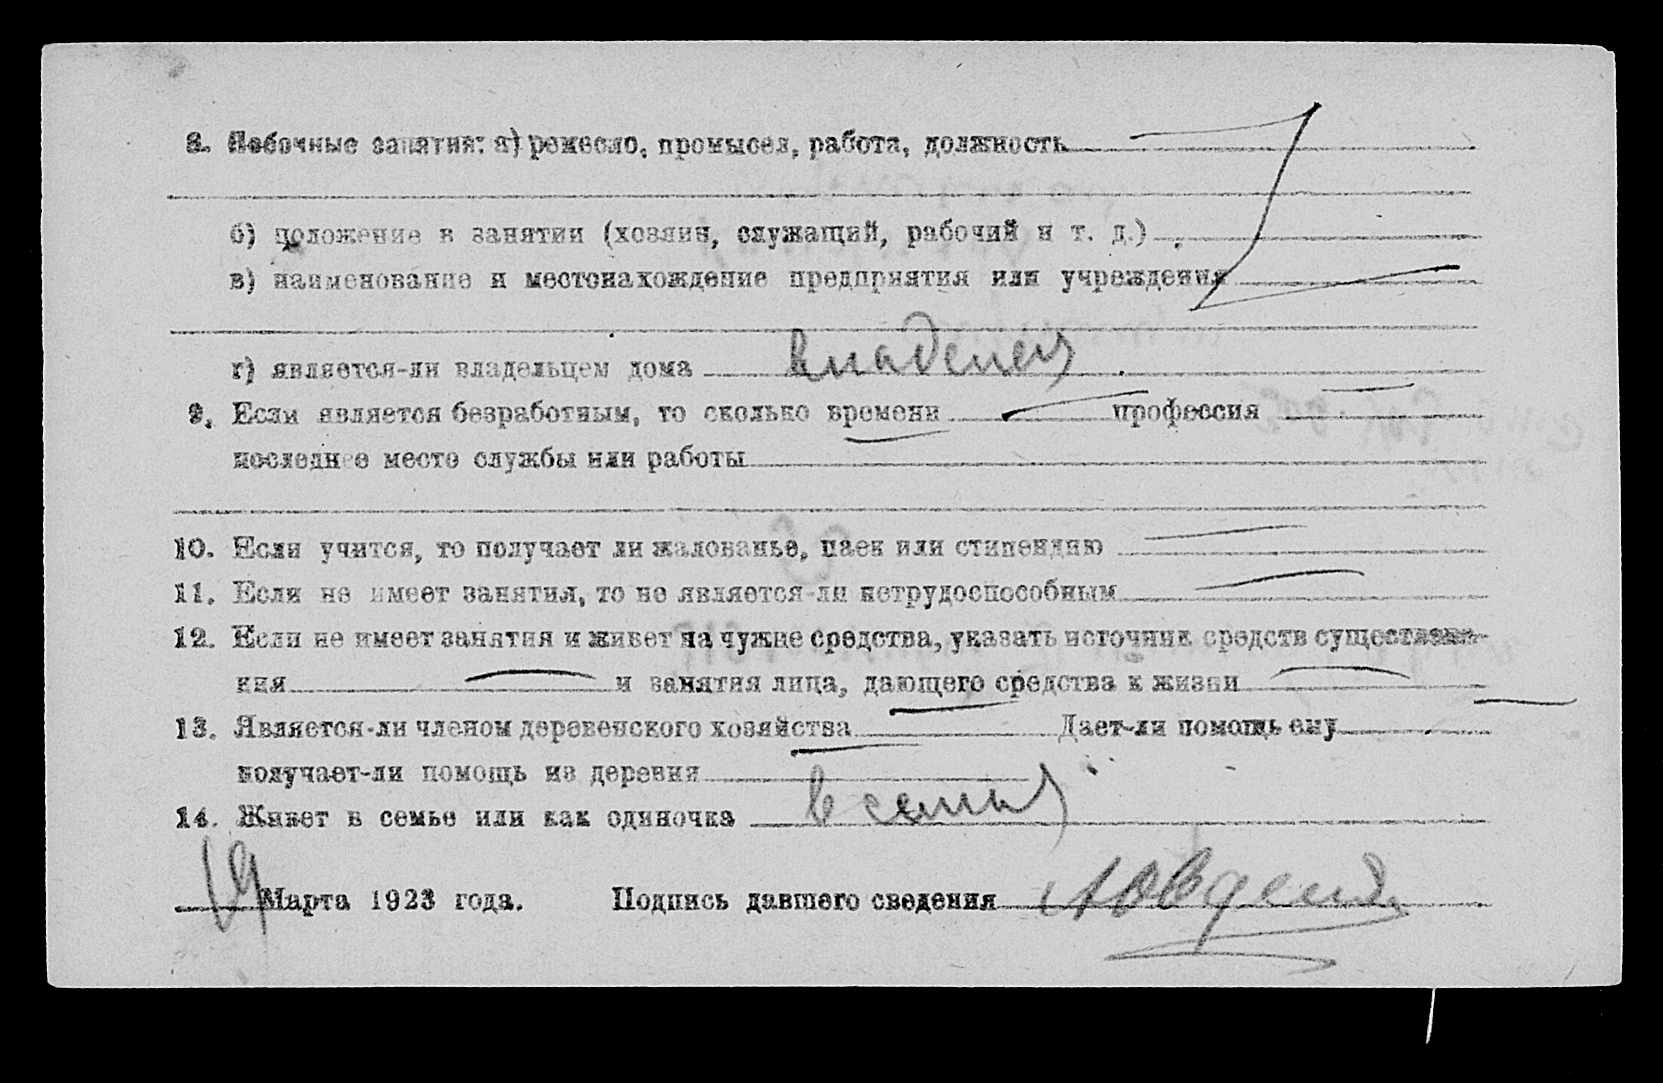 8. Побочные занятия: а) ремесло, промысел, работа, должность
б) положение в занятии (хозяин, служащий, рабочий и т. д.)
в) наименование и местонахождение предприятия или учреждения
г) является-ли владельцем дома владелец
9. Если является безработным, то сколько времени профессия
последнее место службы или работы
10. Если учится, то получает ли жалованье, паек или стипендию
11. Если не имеет занятия, то не является-ли нетрудоспособным
12. Если не имеет занятия и живет на чужие средства, указать источник средств существова-
ния и занятия лица, дающего средства к жизни
13. Является-ли членом деревенского хозяйства Дает-ли помощь ему
получает-ли помощь из деревни
14. Живет в семье или как одиночка в семьи
19 Марта 1923 года. Подпись давшего сведения